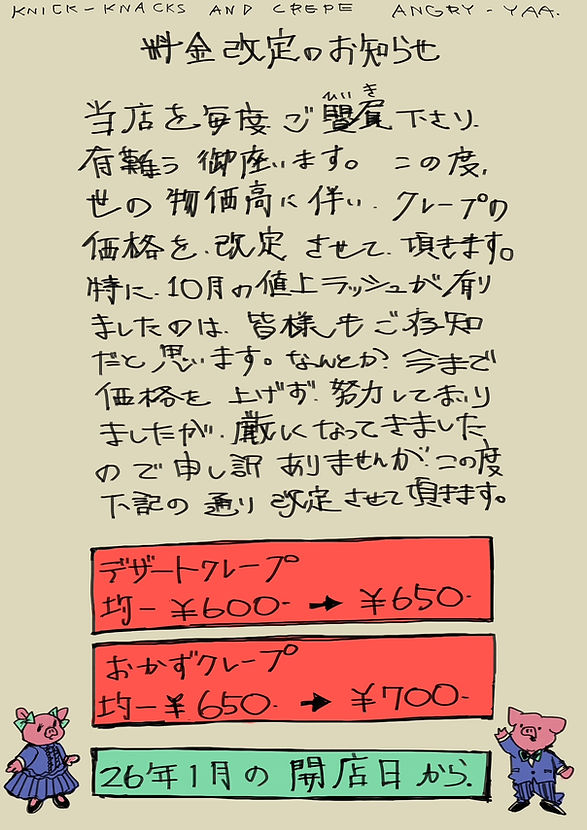 KNICK-KNACKS AND CREPE ANGRY-YAA.
料金改定のお知らせ
当店を毎度ご贔屓下さり
ひいき
有難う御座います。この度、
世の物価高に伴い、クレープの
価格を、改定させて頂きます。
特に、10月の値上ラッシュが有り
ましたのは、皆様もご存知
だと思います。なんとか、今まで
価格を上げず、努力しておリ
ましたが、厳しくなってきました
ので申し訳ありませんが、この度
下記の通り改定させて頂きます。
デザートクレープ
均一¥600-→¥650-
おかずクレープ
均一¥650-→¥700-
26年1月の開店日から.